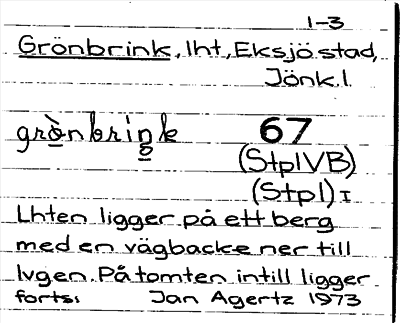 1-3
Grönbrink, lht, Eksjö stad,
Jönk.l.
grò̱nbriṉk 67
(StplVB)
(Stpl) I
Lhten ligger på ett berg
med en vägbacke ner till
lvgen. På tomten intill ligger
forts: Jan Agertz 1973